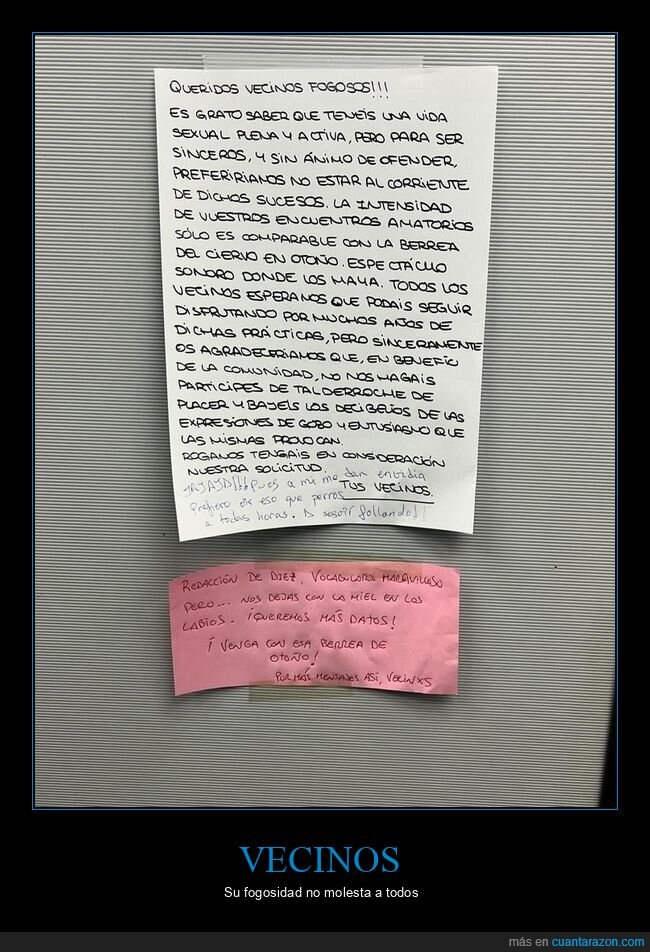 QUERIDOS VECINOS FOGOSOS!!!
ES GRATO SABER QUE TENEIS UNA VIDA
SEXUAL PLENA Y ACTIVA, PERO PARA SER
SINCEROS, Y SIN ÁNIMO DE OFENDER,
PREFERIRIAMOS NO ESTAR AL CORRIENTE
DE DICHOS SUCESOS. LA INTENSIDAD
DE VUESTROS ENCUENTROS AMATORIOS
SÓLO ES COMPARABLE CON LA BERREA
DEL CIERVO EN OTOÑO. ESPECTÁCULO
SONORO DONDE LOS HAYA. TODOS LOS
VECINOS ESPERAMOS QUE PODAIS SEGUIR
DISFRUTANDO POR MUCHOS AÑOS DE
DICHAS PRÁCTICAS, PERO SINCERAMENTE
OS AGRADECERIAMOS QUE, EN BENEFICIO
DE LA COMUNIDAD, NO NOS HAGAIS
PARTICIPES DE TAL DERROCHE DE
PLACER Y BAJEIS LOS DECIBELIOS DE LAS
EXPRESIONES DE GOZO Y ENTUSIASMO QUE
LAS MISMAS PROVOCAN.
ROGAMOS TENGAIS EN CONSIDERACIÓN
NUESTRA SOLICITUD.
TUS VECINOS.
JAJAJA!!! Pues a mi me dan envidia
Prefiero oir eso que perros
a todas horas. A seguir follando!!
REDACCIÓN DE DIEZ, VOCABULARIO MARAVILLOSO
PERO... NOS DEJAS CON LA MIEL EN LOS
LABIOS. ¡QUEREMOS MÁS DATOS!
¡VENGA CON ESA BERREA DE
OTOÑO!
POR MÁS MENSAJES ASÍ, VECINXS
VECINOS
Su fogosidad no molesta a todos
más en cuantarazon.com